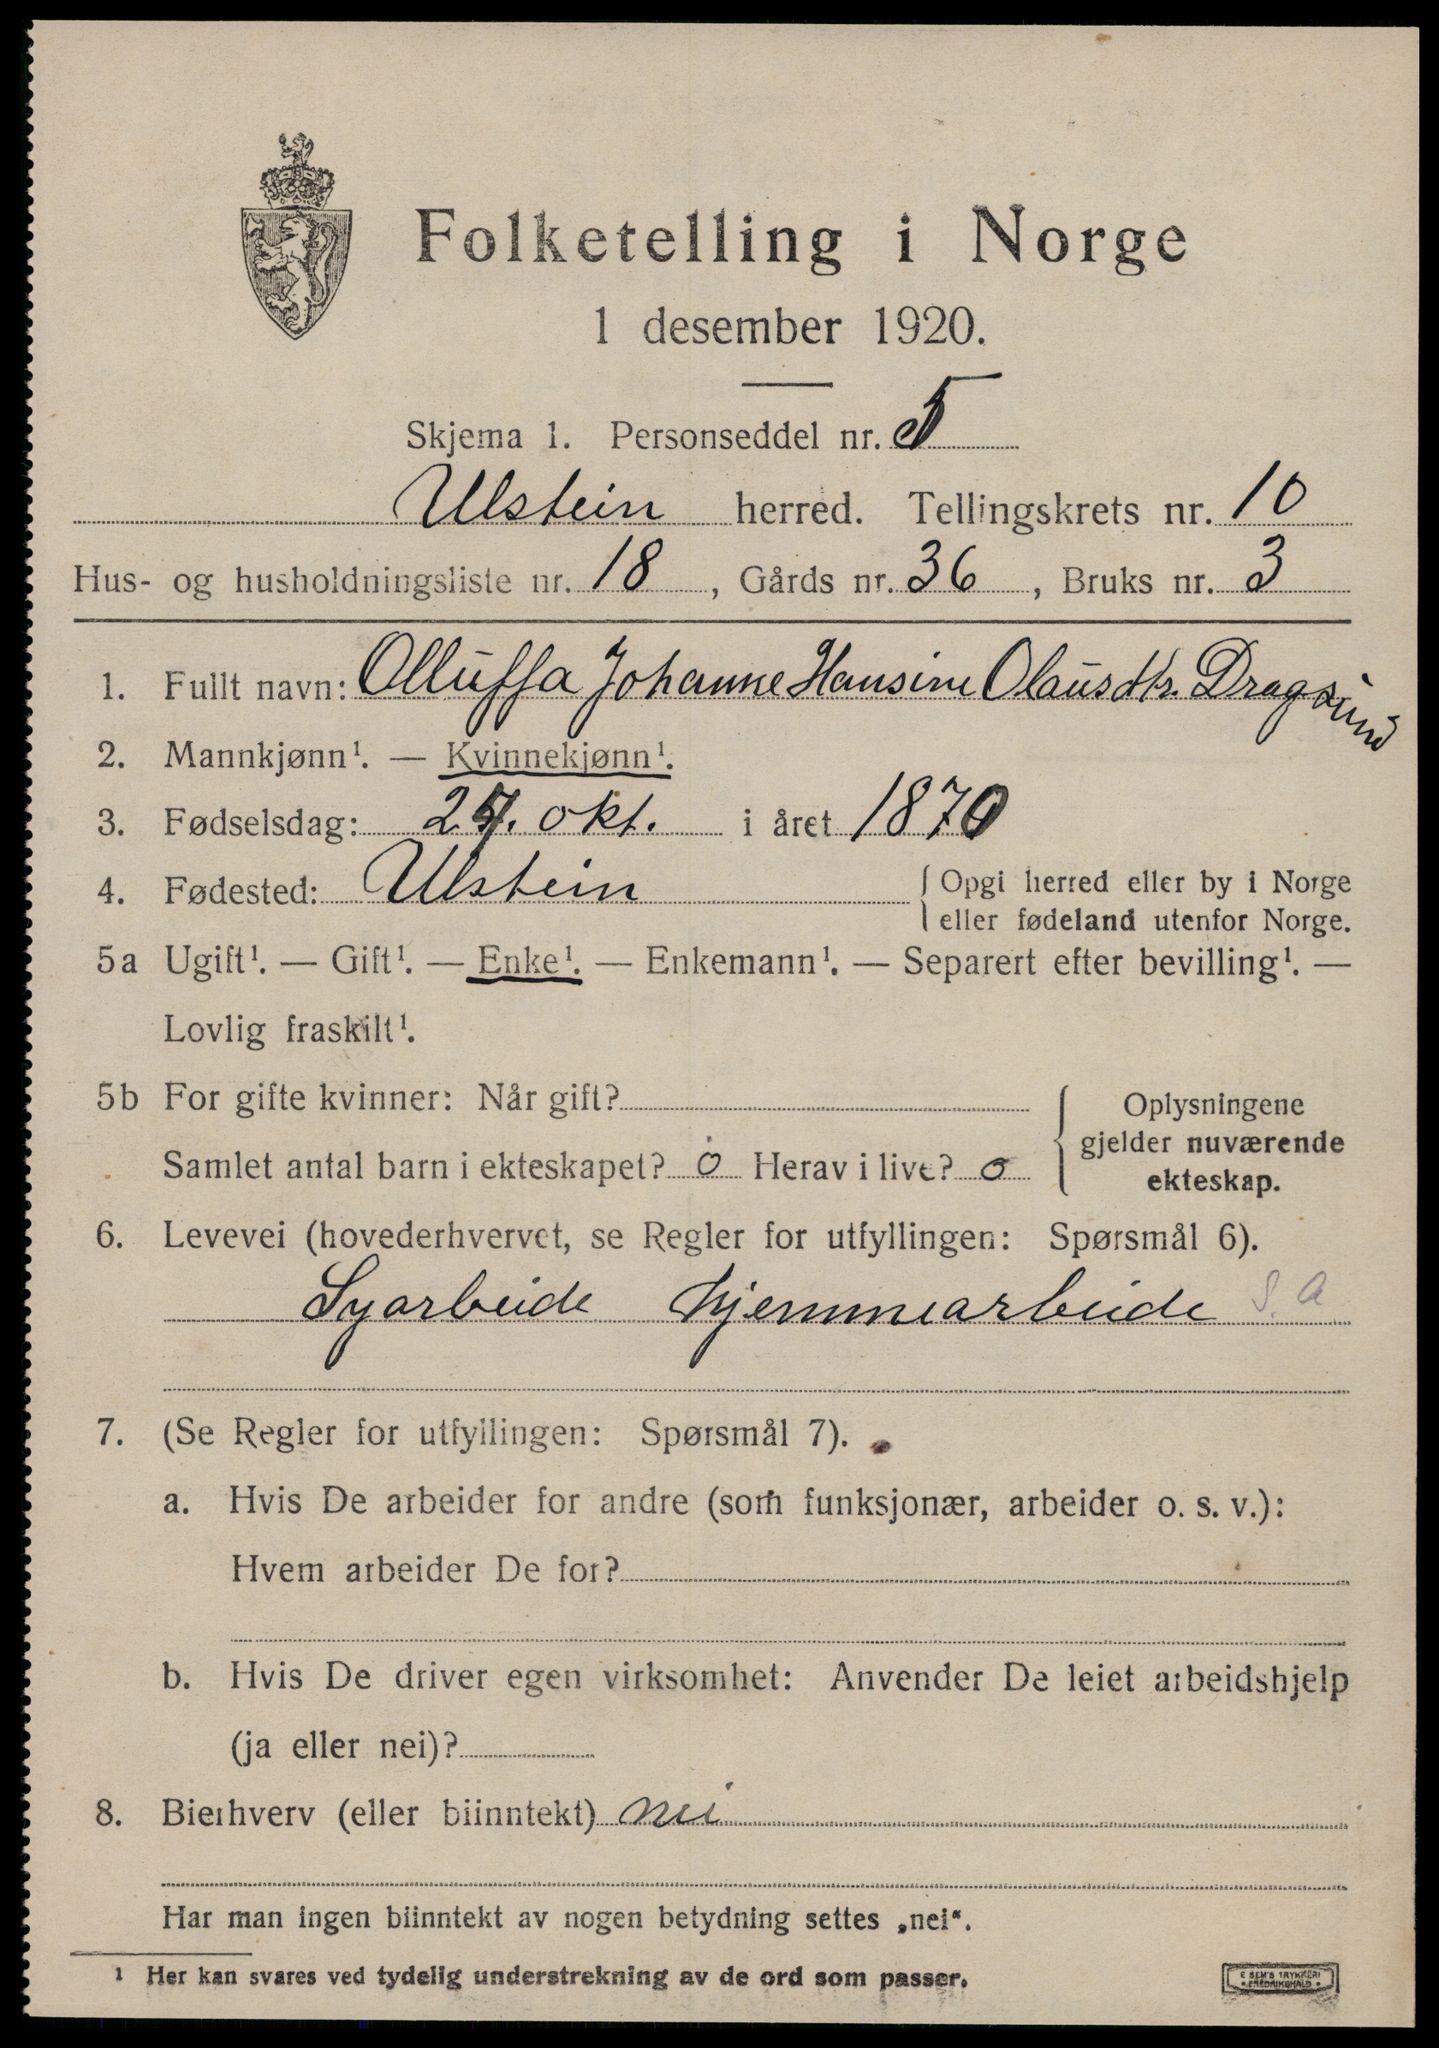 Folketelling i Norge
1 desember 1920.
Skjema 1. Personseddel nr. 5
Ulstein herred. Tellingskrets nr. 10
Hus- og husholdningsliste nr. 18, Gårds nr. 36, Bruks nr. 3
1. Fullt navn: Olluffa Johanne Hansine Olausdtr. Dragsund
2. Mannkjønn¹. — Kvinnekjønn¹.
3. Fødselsdag: 27. okt. i året 1870
4. Fødested: Ulstein { Opgi herred eller by i Norge
eller fødeland utenfor Norge.
5a Ugift¹. — Gift¹. — Enke¹. — Enkemann¹. — Separert efter bevilling¹. —
Lovlig fraskilt¹.
5b For gifte kvinner: Når gift?
Samlet antal barn i ekteskapet? 0 Herav i live? 0
{ Oplysningene
gjelder nuværende
ekteskap.
6. Levevei (hovederhvervet, se Regler for utfyllingen: Spørsmål 6).
Syarbeide hjemmearbeide S. A
7. (Se Regler for utfyllingen: Spørsmål 7).
a. Hvis De arbeider for andre (som funksjonær, arbeider o. s. v.):
Hvem arbeider De for?
b. Hvis De driver egen virksomhet: Anvender De leiet arbeidshjelp
(ja eller nei)?
8. Bierhverv (eller biinntekt) nei
Har man ingen biinntekt av nogen betydning settes „nei“.
¹ Her kan svares ved tydelig understrekning av de ord som passer.
E SEM'S TRYKKERI
FREDRIKSHALD